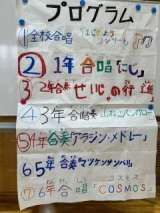 プログラム
1 全校合唱
② 1年 合唱「にじ」
3 2年合奏 せいじゃの行進
④ 3年 合奏
⑤ 4年 合奏「アラジン・メドレー」
6 5年 合奏「マツケンサンバ」
⑦ 6年 合唱「COSMOS」
コスモス